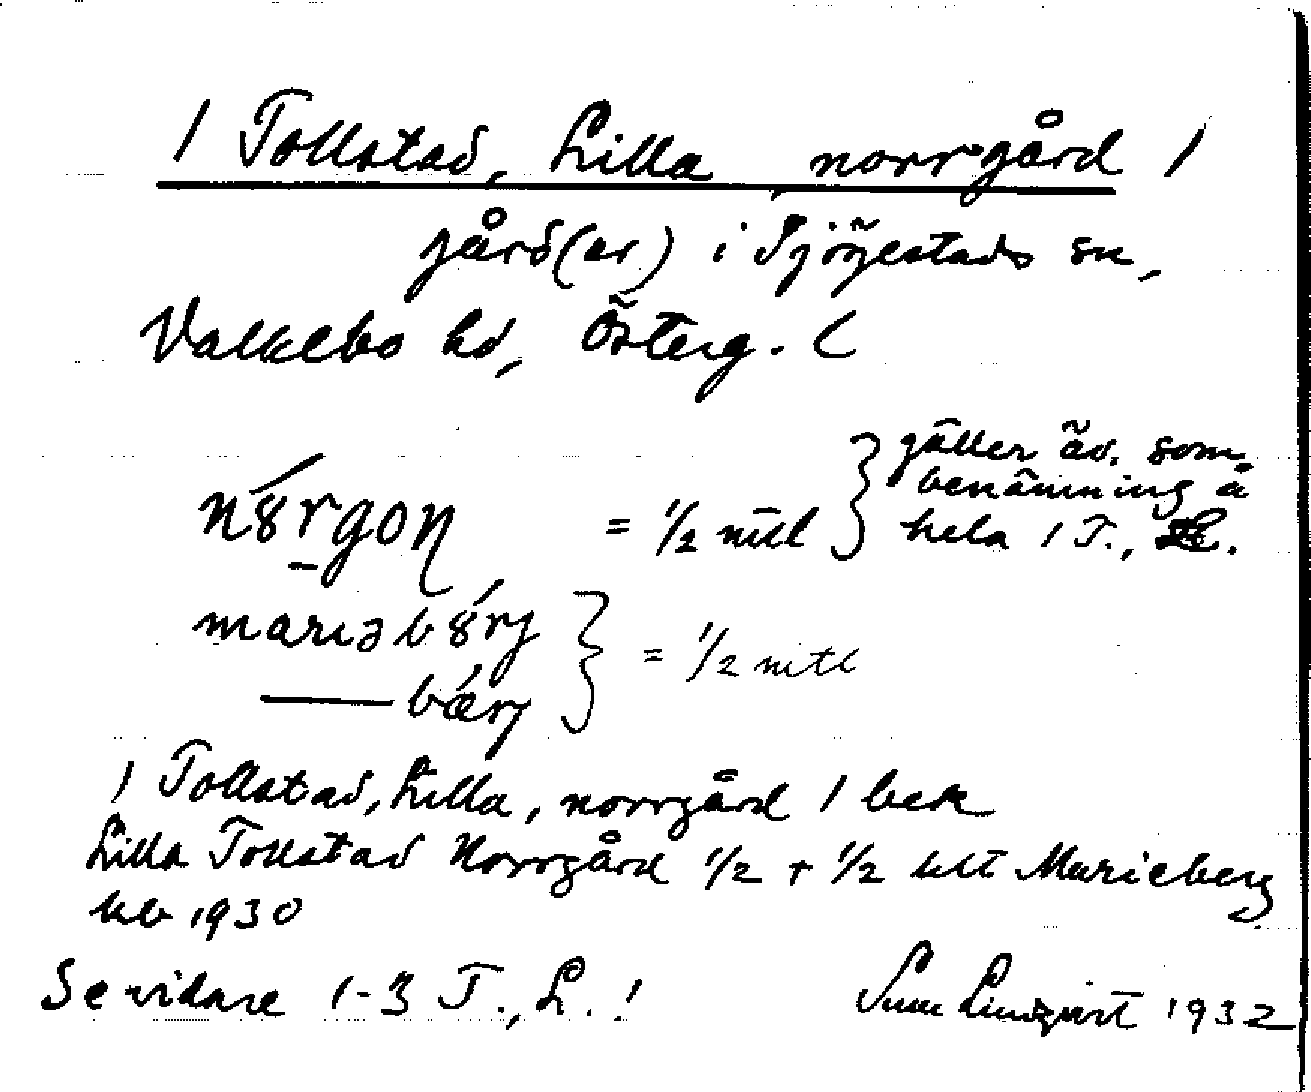 1 Tollstad, Lilla, norrgård 1
gård(ar) i Sjögestads sn,
Valkebo hd, Österg. (
nȣrgoɳ = 1/2 mtl } gäller äv. som
benämning å
hela 1 T., L.
mariəbȣrj
—— bærj } = 1/2 mtl
1 Tollstad, Lilla, norrgård 1 besk
Lilla Tollstad Norrgård 1/2 + 1/2 Marieberg
kb 1930
Se vidare 1-3 T., L. !
Sune Lindqvist 1932